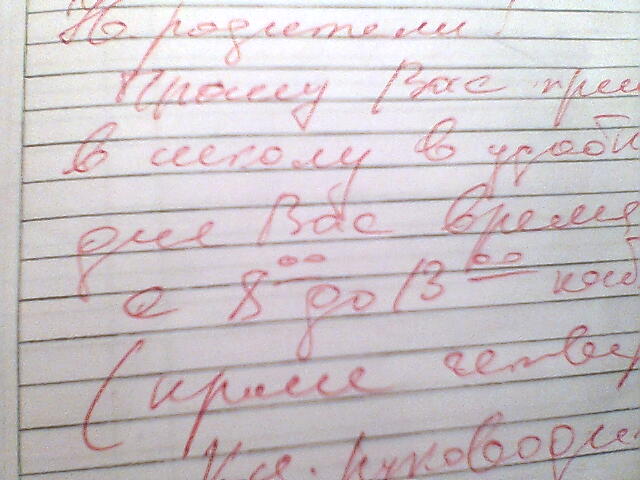 родители!
Прошу Вас при
в школу в удобн
для Вас время
с 8 00 до 13 00 каб
(кроме четвер
Кл. руководи